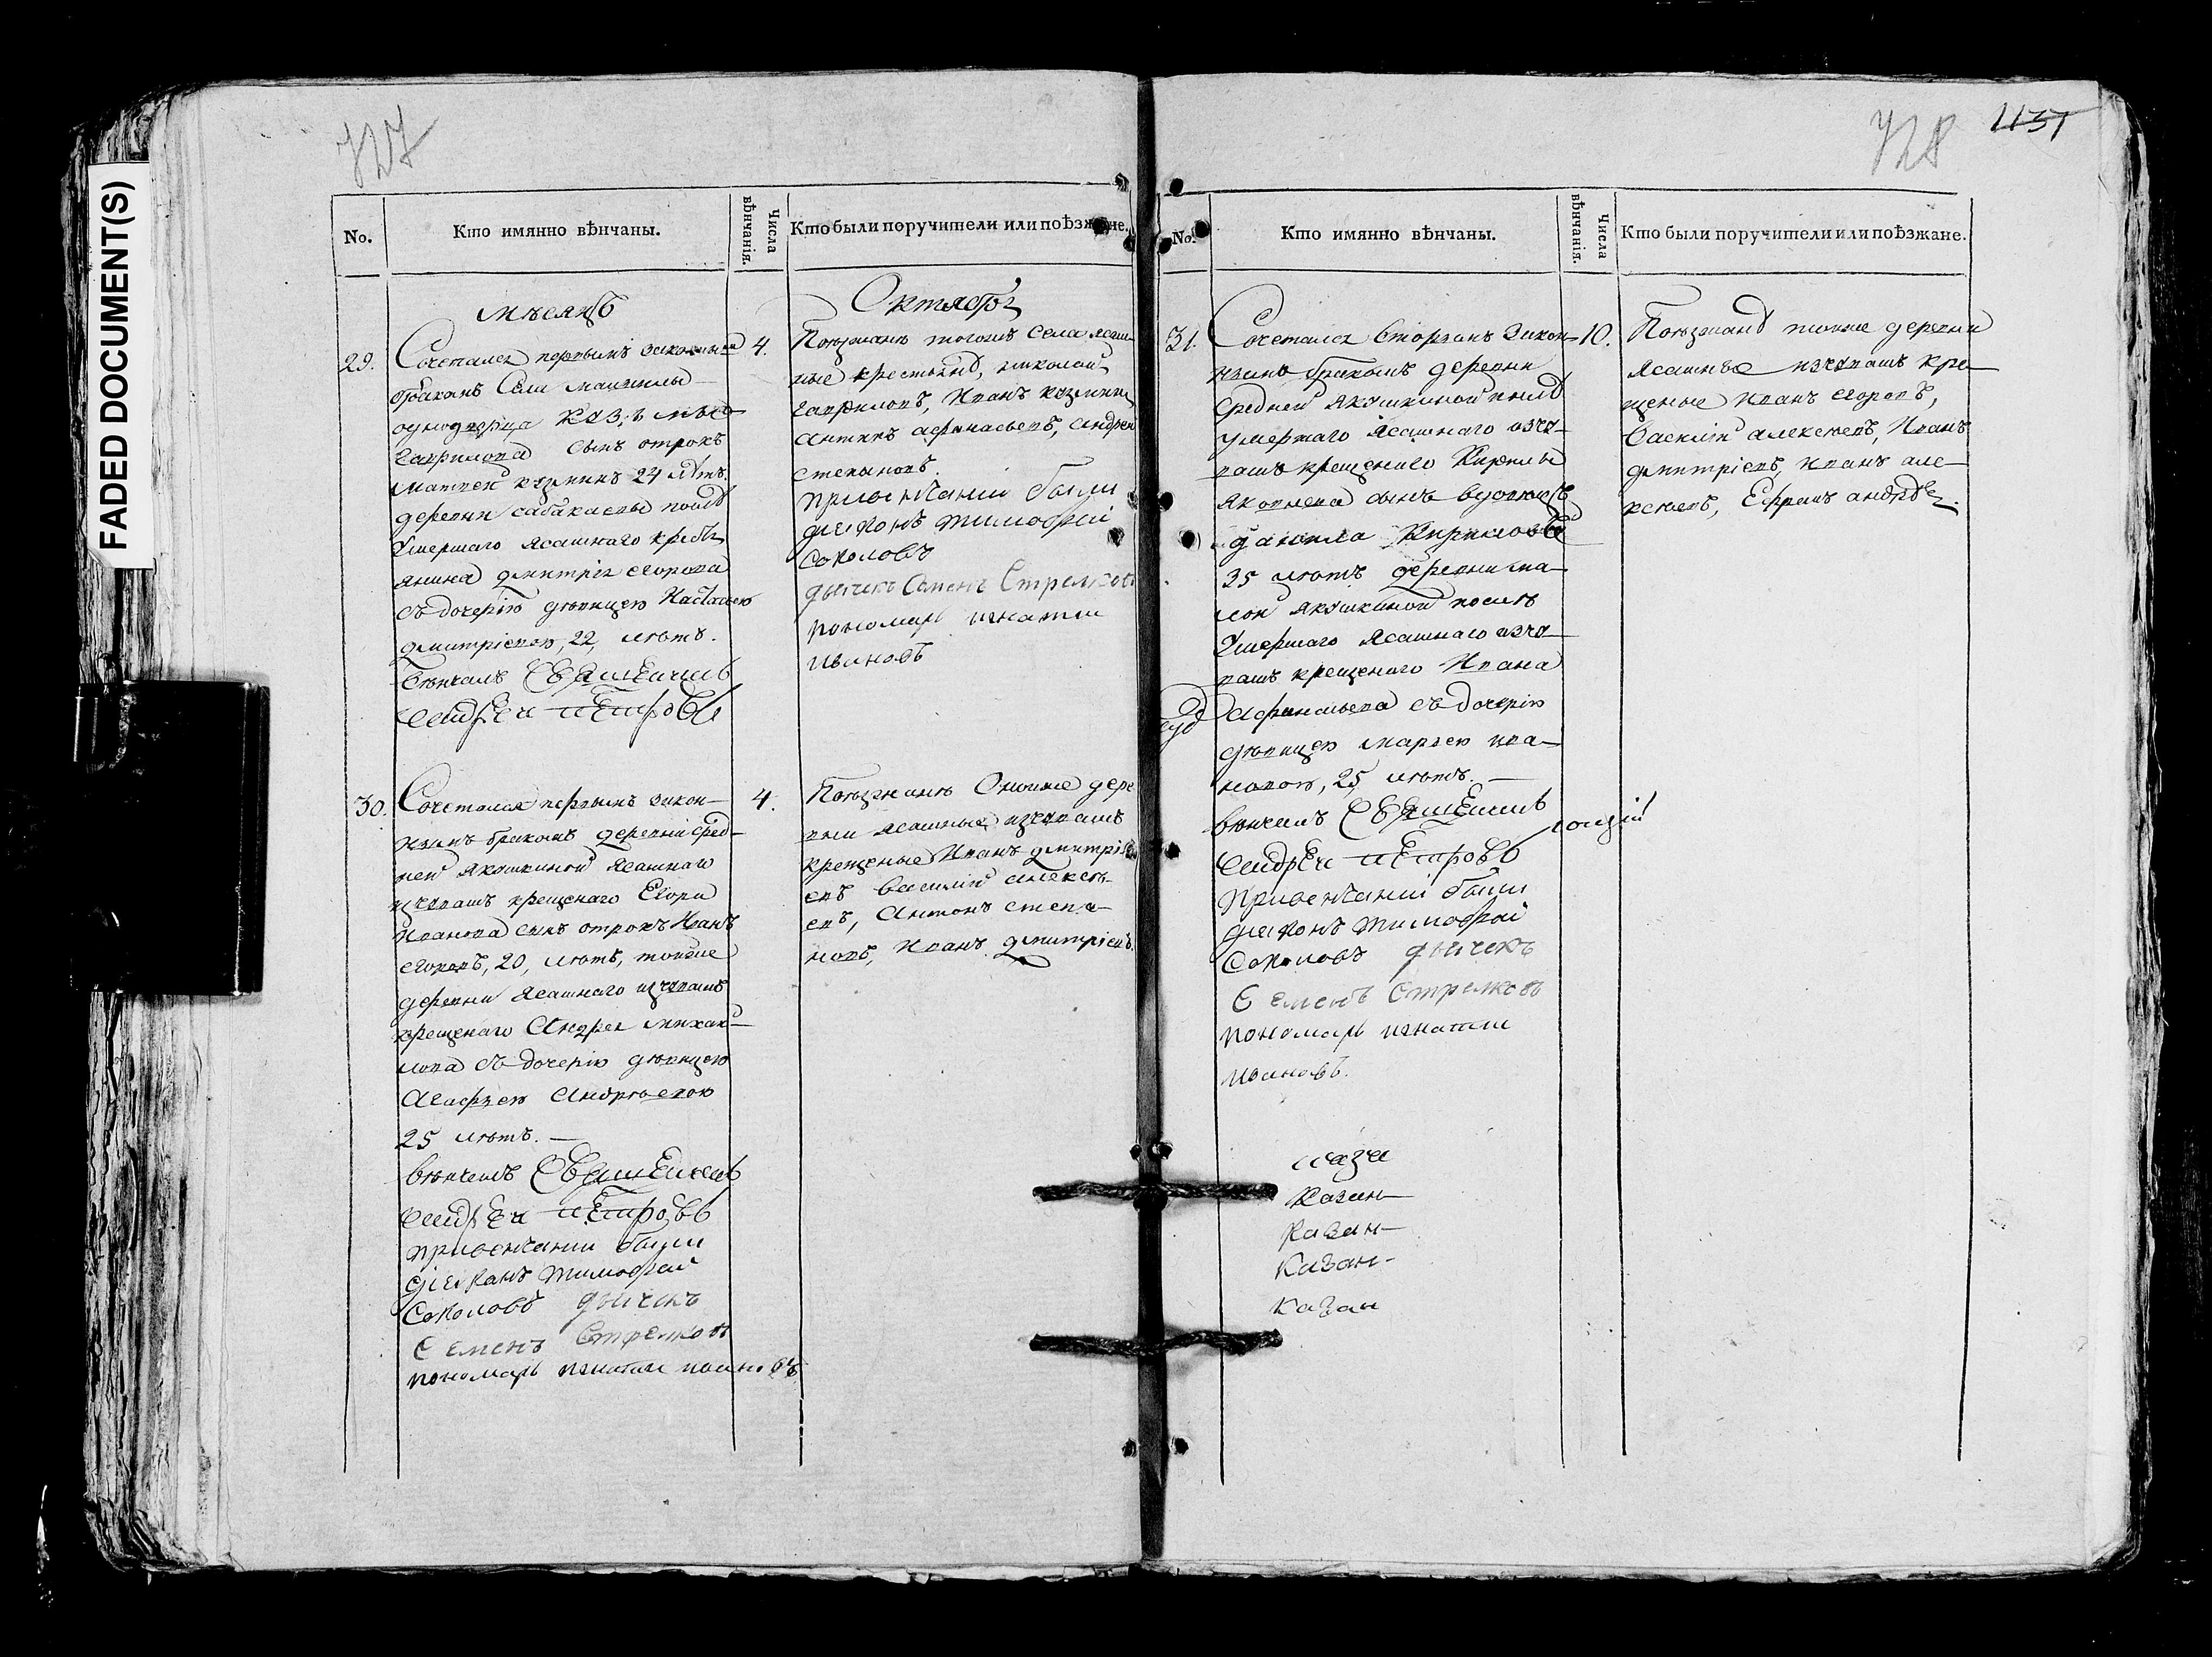 FADED DOCUMENT(S)
727
No.
Кто имянно вѣнчаны.
Числа вѣнчанія.
Кто были поручители или поѣзжане.
мѣсяцъ
Октябрь
29.
Сочетался первымъ законным
бракомъ Села
однодворца Козмы
Гаврилова сынъ отрокъ
Матвей козминъ 24 лѣтъ.
деревни сабакаевы послѣ
Умершаго ясашнаго кресть
янина дмитрія егорова
съ дочерію дѣвицею Настасьею
дмитріевою, 22, лѣтъ.
вѣнчалъ Священникъ
Андрей Петровъ
4.
Поѣзжанѣ тогожъ Села ясаш
ные крестьянѣ, николай
гавриловъ, Иванъ козминъ
Антипъ афонасьевъ, андрей
степановъ.
при венчании были
диаконъ тимофей
Соколовъ
дьячекъ Семенъ Стрелковъ
пономарь игнатии
ивановъ
30.
Сочетался первымъ закон-
нымъ бракомъ деревни сред-
ней Якушкиной Ясашнаго
изчувашъ крещенаго Егора
Иванова сынъ отрокъ Иванъ
егоровъ, 20, лѣтъ, тойже
деревни Ясашнаго изчувашъ
крещенаго Андрея михаи-
лова съ дочерію дѣвицею
Агафьею Андрѣевою
25 лѣтъ.
вѣнчалъ Священникъ
Андрей Петровъ
при венчании были
диаконъ тимофей
Соколовъ дьячекъ
Семенъ Стрелковъ
пономарь игнатии ивановъ
4.
Поѣзжанѣ Оноиже дере
вни ясашные изчувашъ
крещеные Иванъ дмитріе
евъ василій алексѣ-
евъ, Антонъ степа-
новъ, Иванъ дмитріевъ.
728
1131
No.
Кто имянно вѣнчаны.
Числа вѣнчанія.
Кто были поручители или поѣзжане.
31.
Сочетался вторымъ закон-
нымъ бракомъ деревни
Средней Якушкиной послѣ
умершаго Ясашнаго изчу-
вашъ крещенаго Кирилы
Яковлева сынъ вдовецъ
данила Кириловъ
35 лѣтъ деревни ма-
лой Якушкиной послѣ
Умершаго Ясашнаго изчу-
вашъ крещенаго Ивана
Афонасьева съ дочерію
дѣвицею марьею ива-
новою, 25, лѣтъ.
вѣнчалъ Священникъ
Андрей Петровъ
при венчании были
диаконъ тимофей
Соколовъ дьячекъ
Семенъ Стрелковъ
пономарь игнатии
ивановъ.
10.
Поѣзжанѣ тойже деревни
Ясашные изчувашъ кре-
щеные Иванъ егоровъ,
Василій алексѣевъ, Иванъ
дмитріевъ, Иванъ але-
ксѣевъ, Ефремъ андрѣе.
Казан-
Казан-
Казан-
Казан